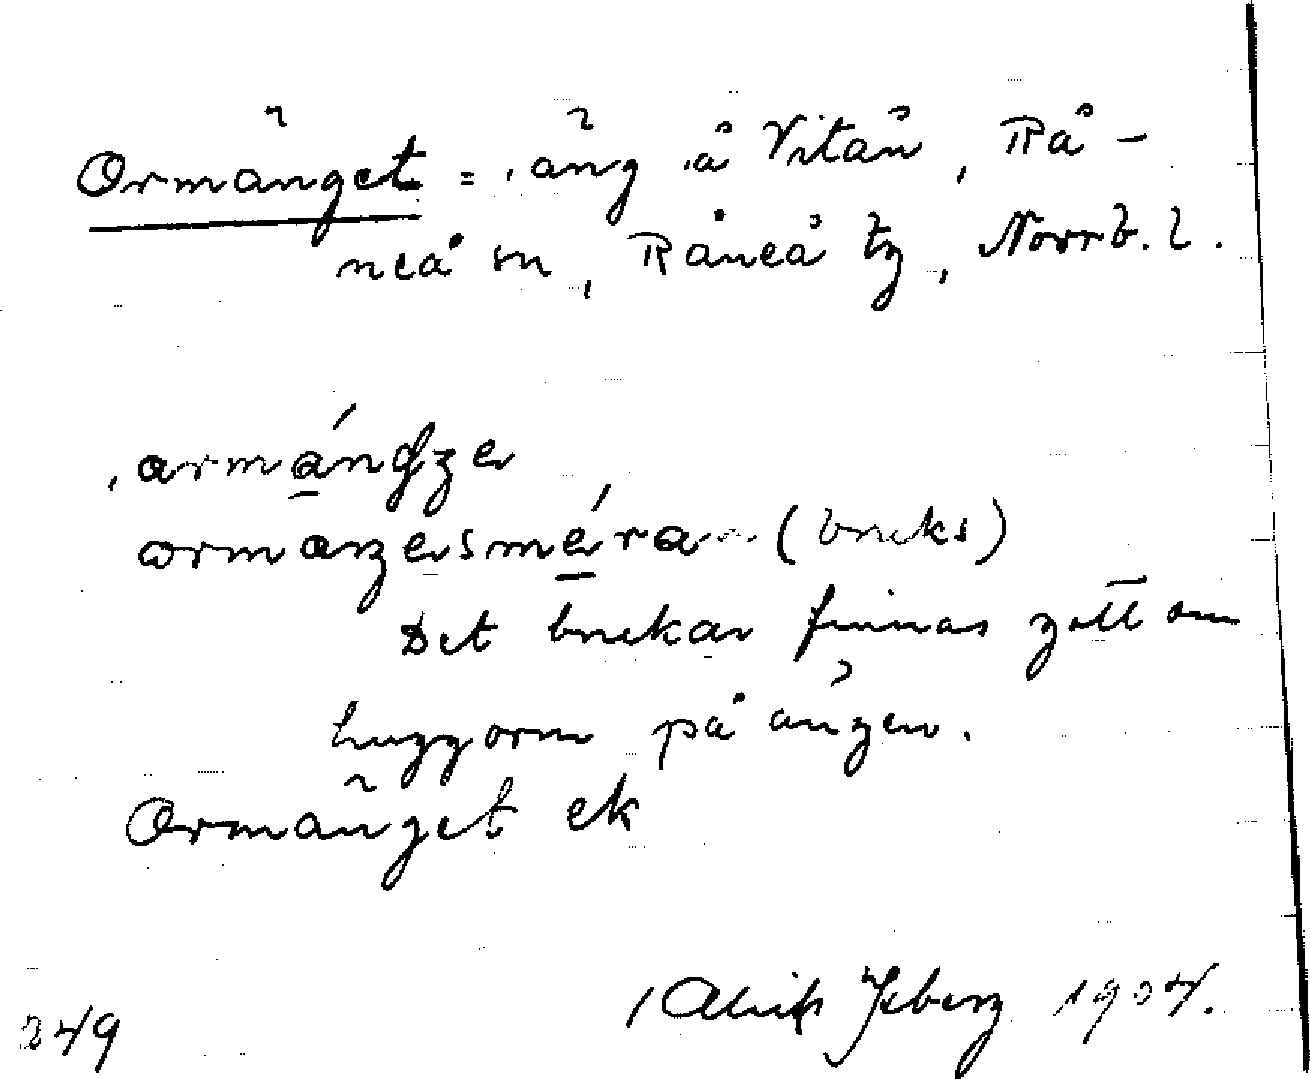 Ormänget = äng å Vitån, Rå-
neå sn, Råneå tg, Norrb. l.
ormäesméra (bruks)
Det brukar finnas gott om
huggorm på ängen.
Ormänget ek
Isberg 1927.
249